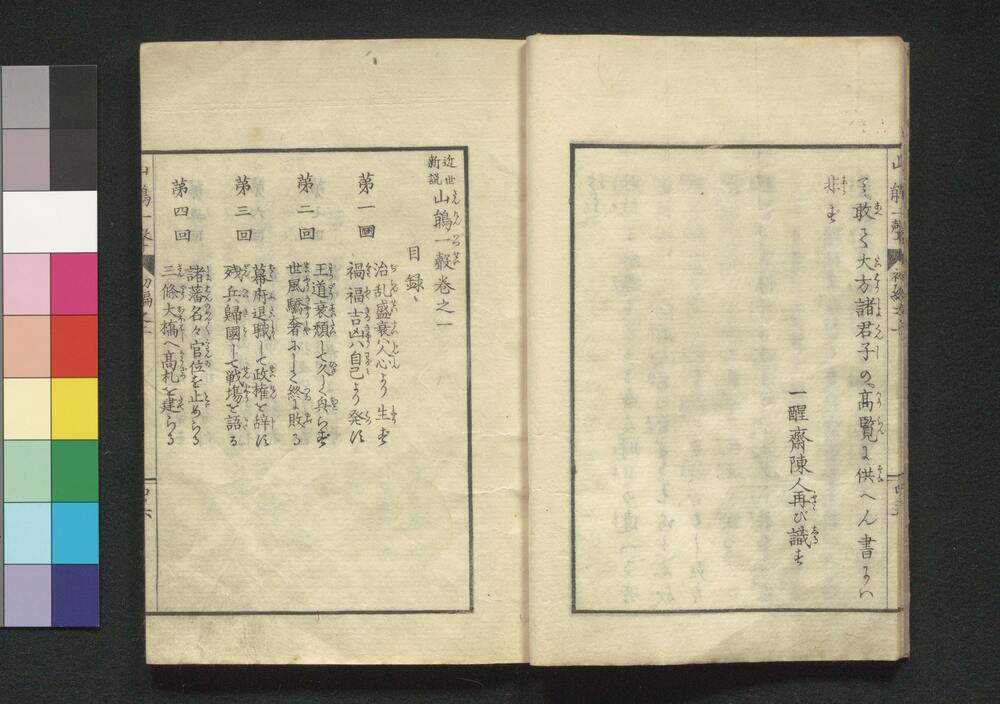 て敢て大方諸君子の高覧に供へん書には
非ず
一醒齋陳人再び識す
近世
新説
山鵑一聲巻之一
目録
第一回
治乱盛衰ハ人心より生ず
禍福吉凶ハ自己より発す
第二回
王道衰頽して久しく興らず
世風驕奢にして終に敗る
第三回
幕府退職して政権を辞す
残兵歸國して戦塲を語る
第四回
諸藩名々官位を止めらる
三條大橋へ高札を建らる